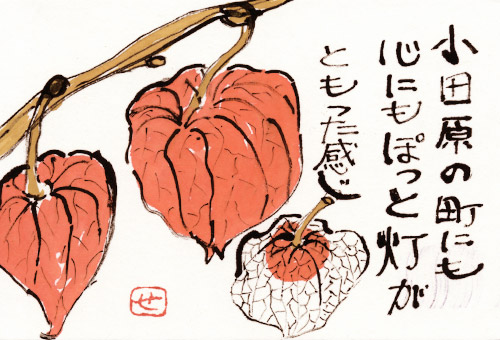 小田原の町にも
心にもぽっと灯が
ともった感じ
せ